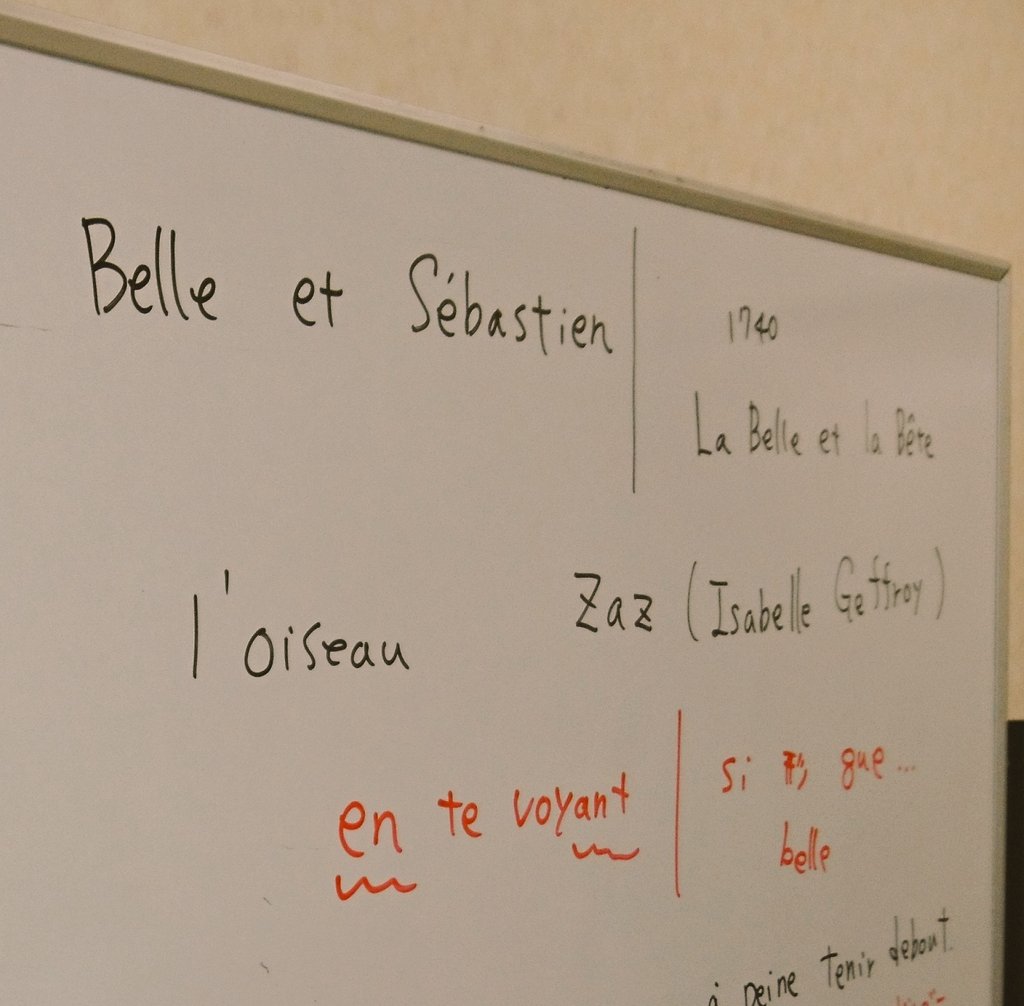 Belle et Sébastien
1740
La Belle et la Bête
l'oiseau
Zaz (Isabelle Geffroy)
en te voyant
si 形 que...
belle
à peine tenir debout.